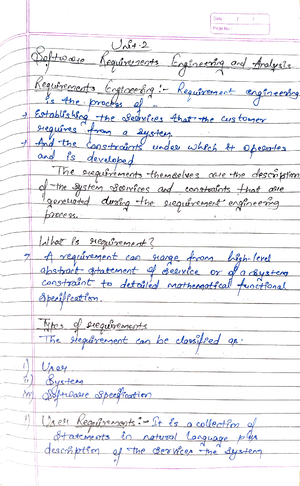 Date
Page No.
Unit-2
Software Requirements Engineering and Analysis
Requirements Engineering :- Requirement engineering
is the process of -
→ Establishing the services that the customer
requires from a system
→ And the constraints under which it operates
and is developed
The requirements themselves are the description
of the system services and constraints that are
generated during the requirement engineering
process.
What is requirement?
→ A requirement can range from high-level
abstract statement of service or of a system
constraint to detailed mathematical functional
specification.
Types of requirements
The requirement can be classified as:
i) User
ii) System
iii) Software specification
i) User Requirements :- It is a collection of
statements in natural language plus
description of the services the system